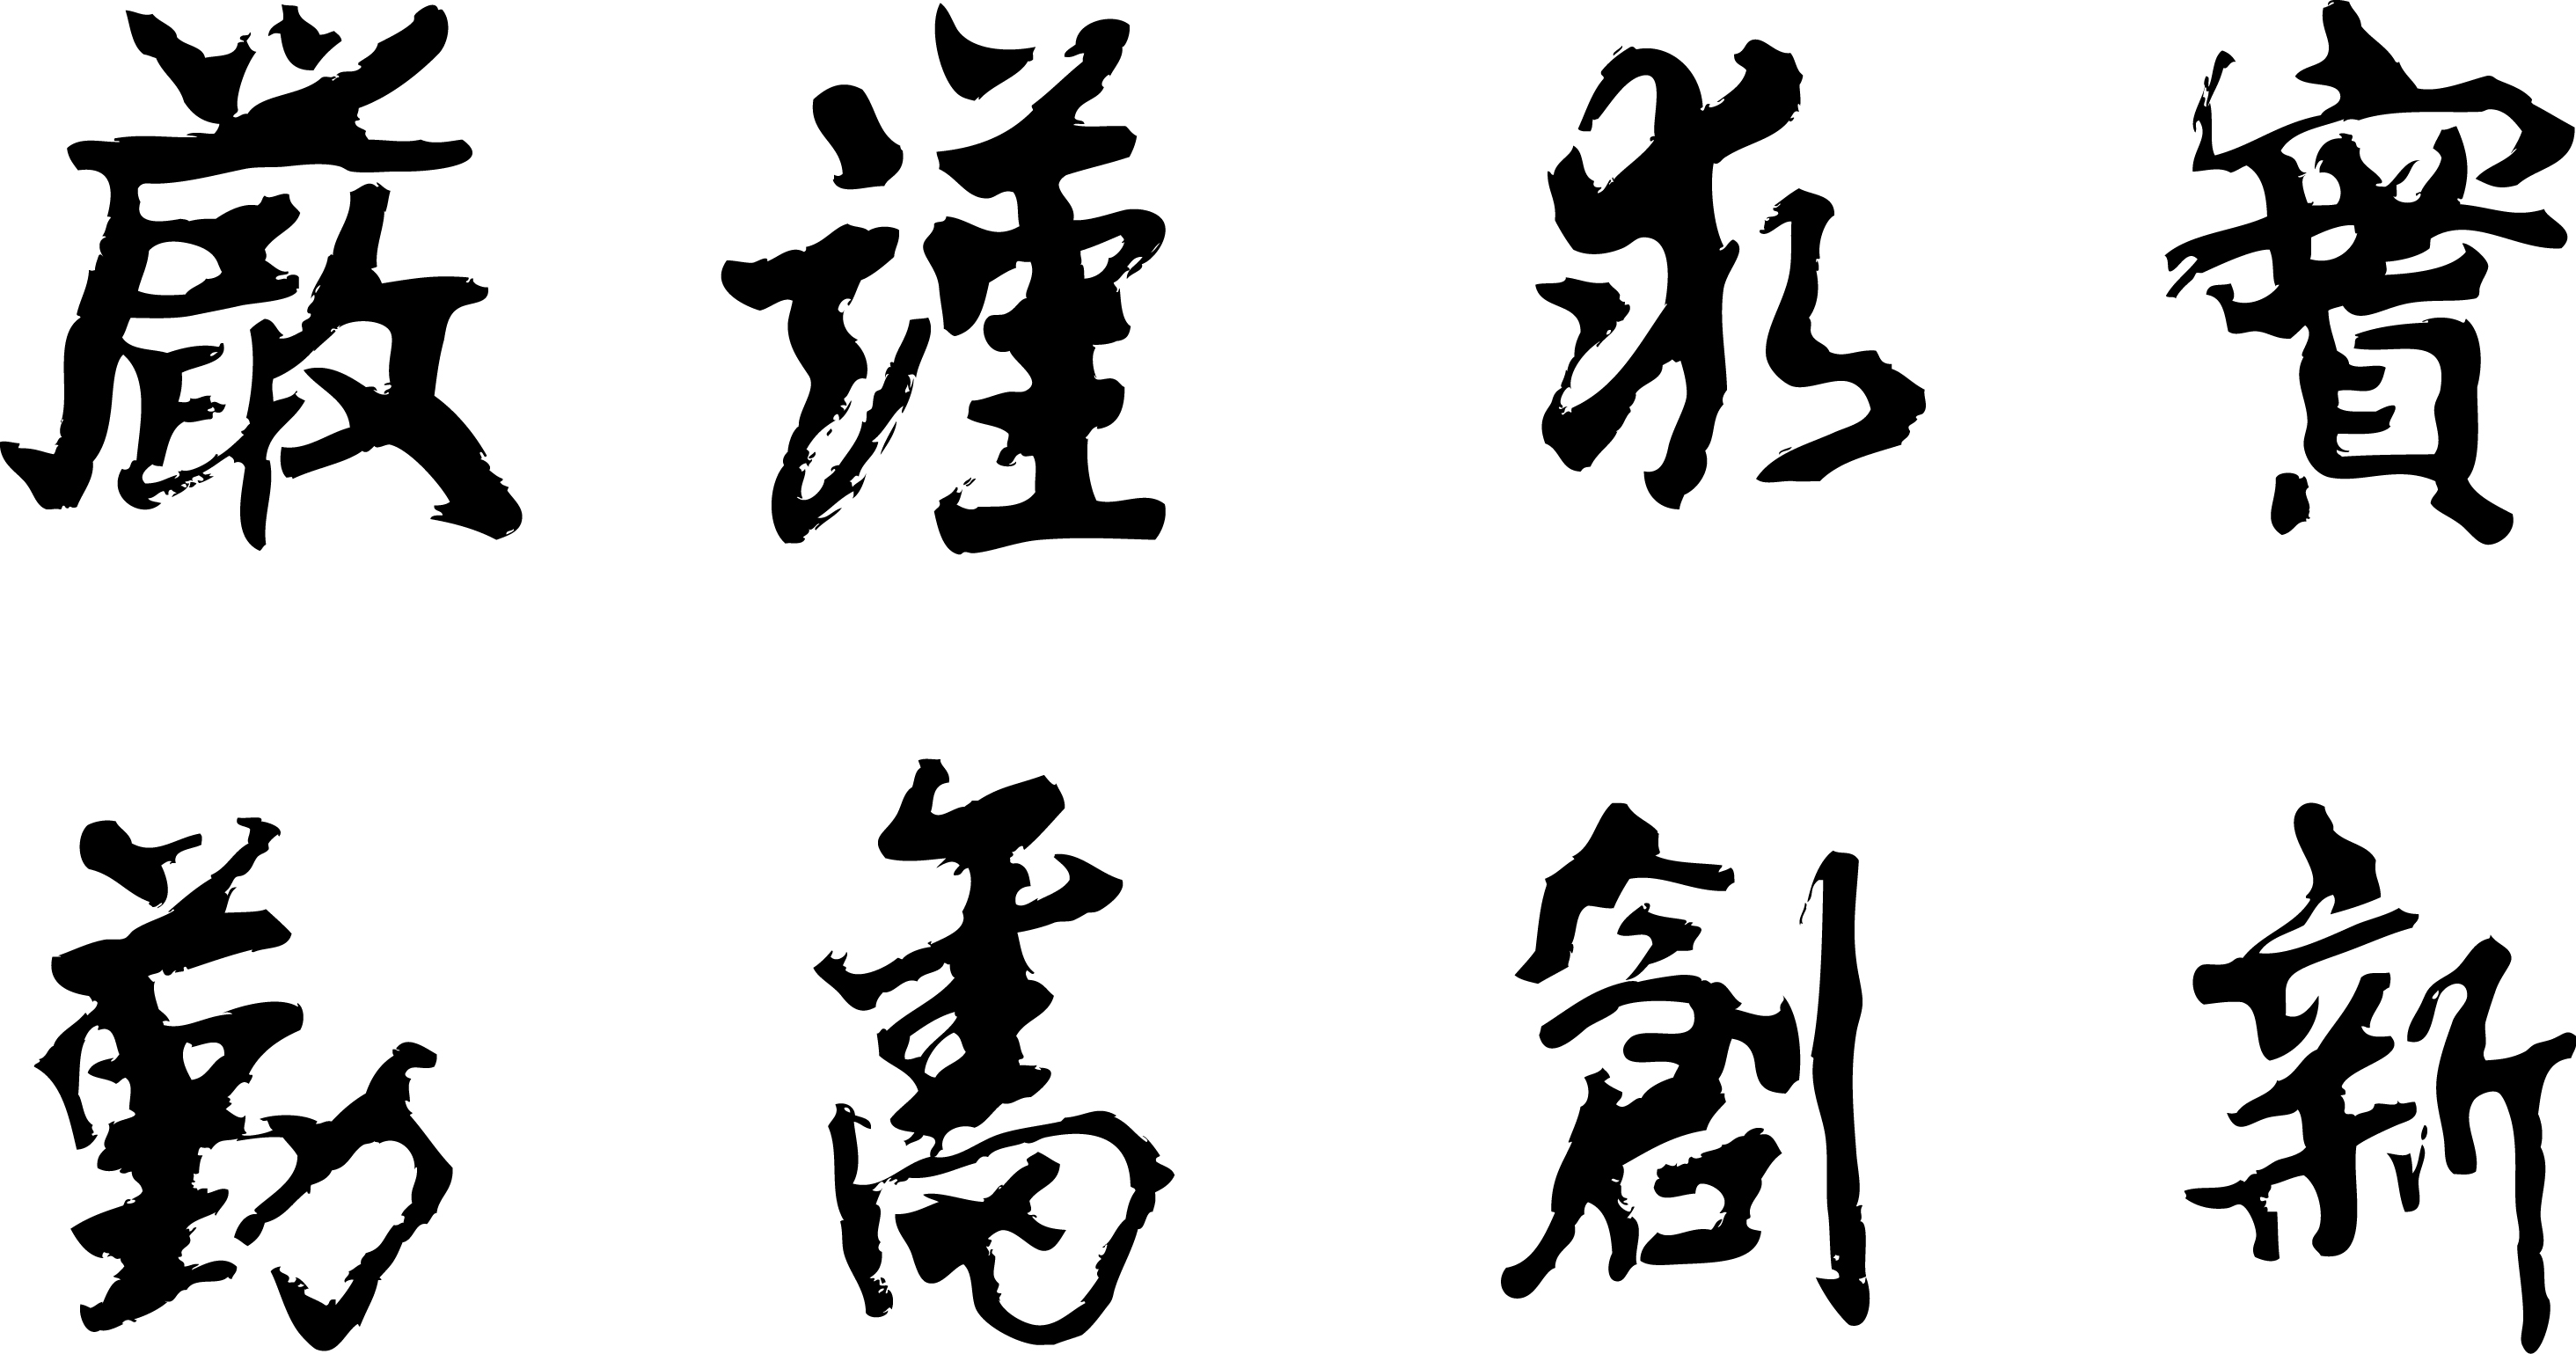 嚴謹求實
勤奮創新